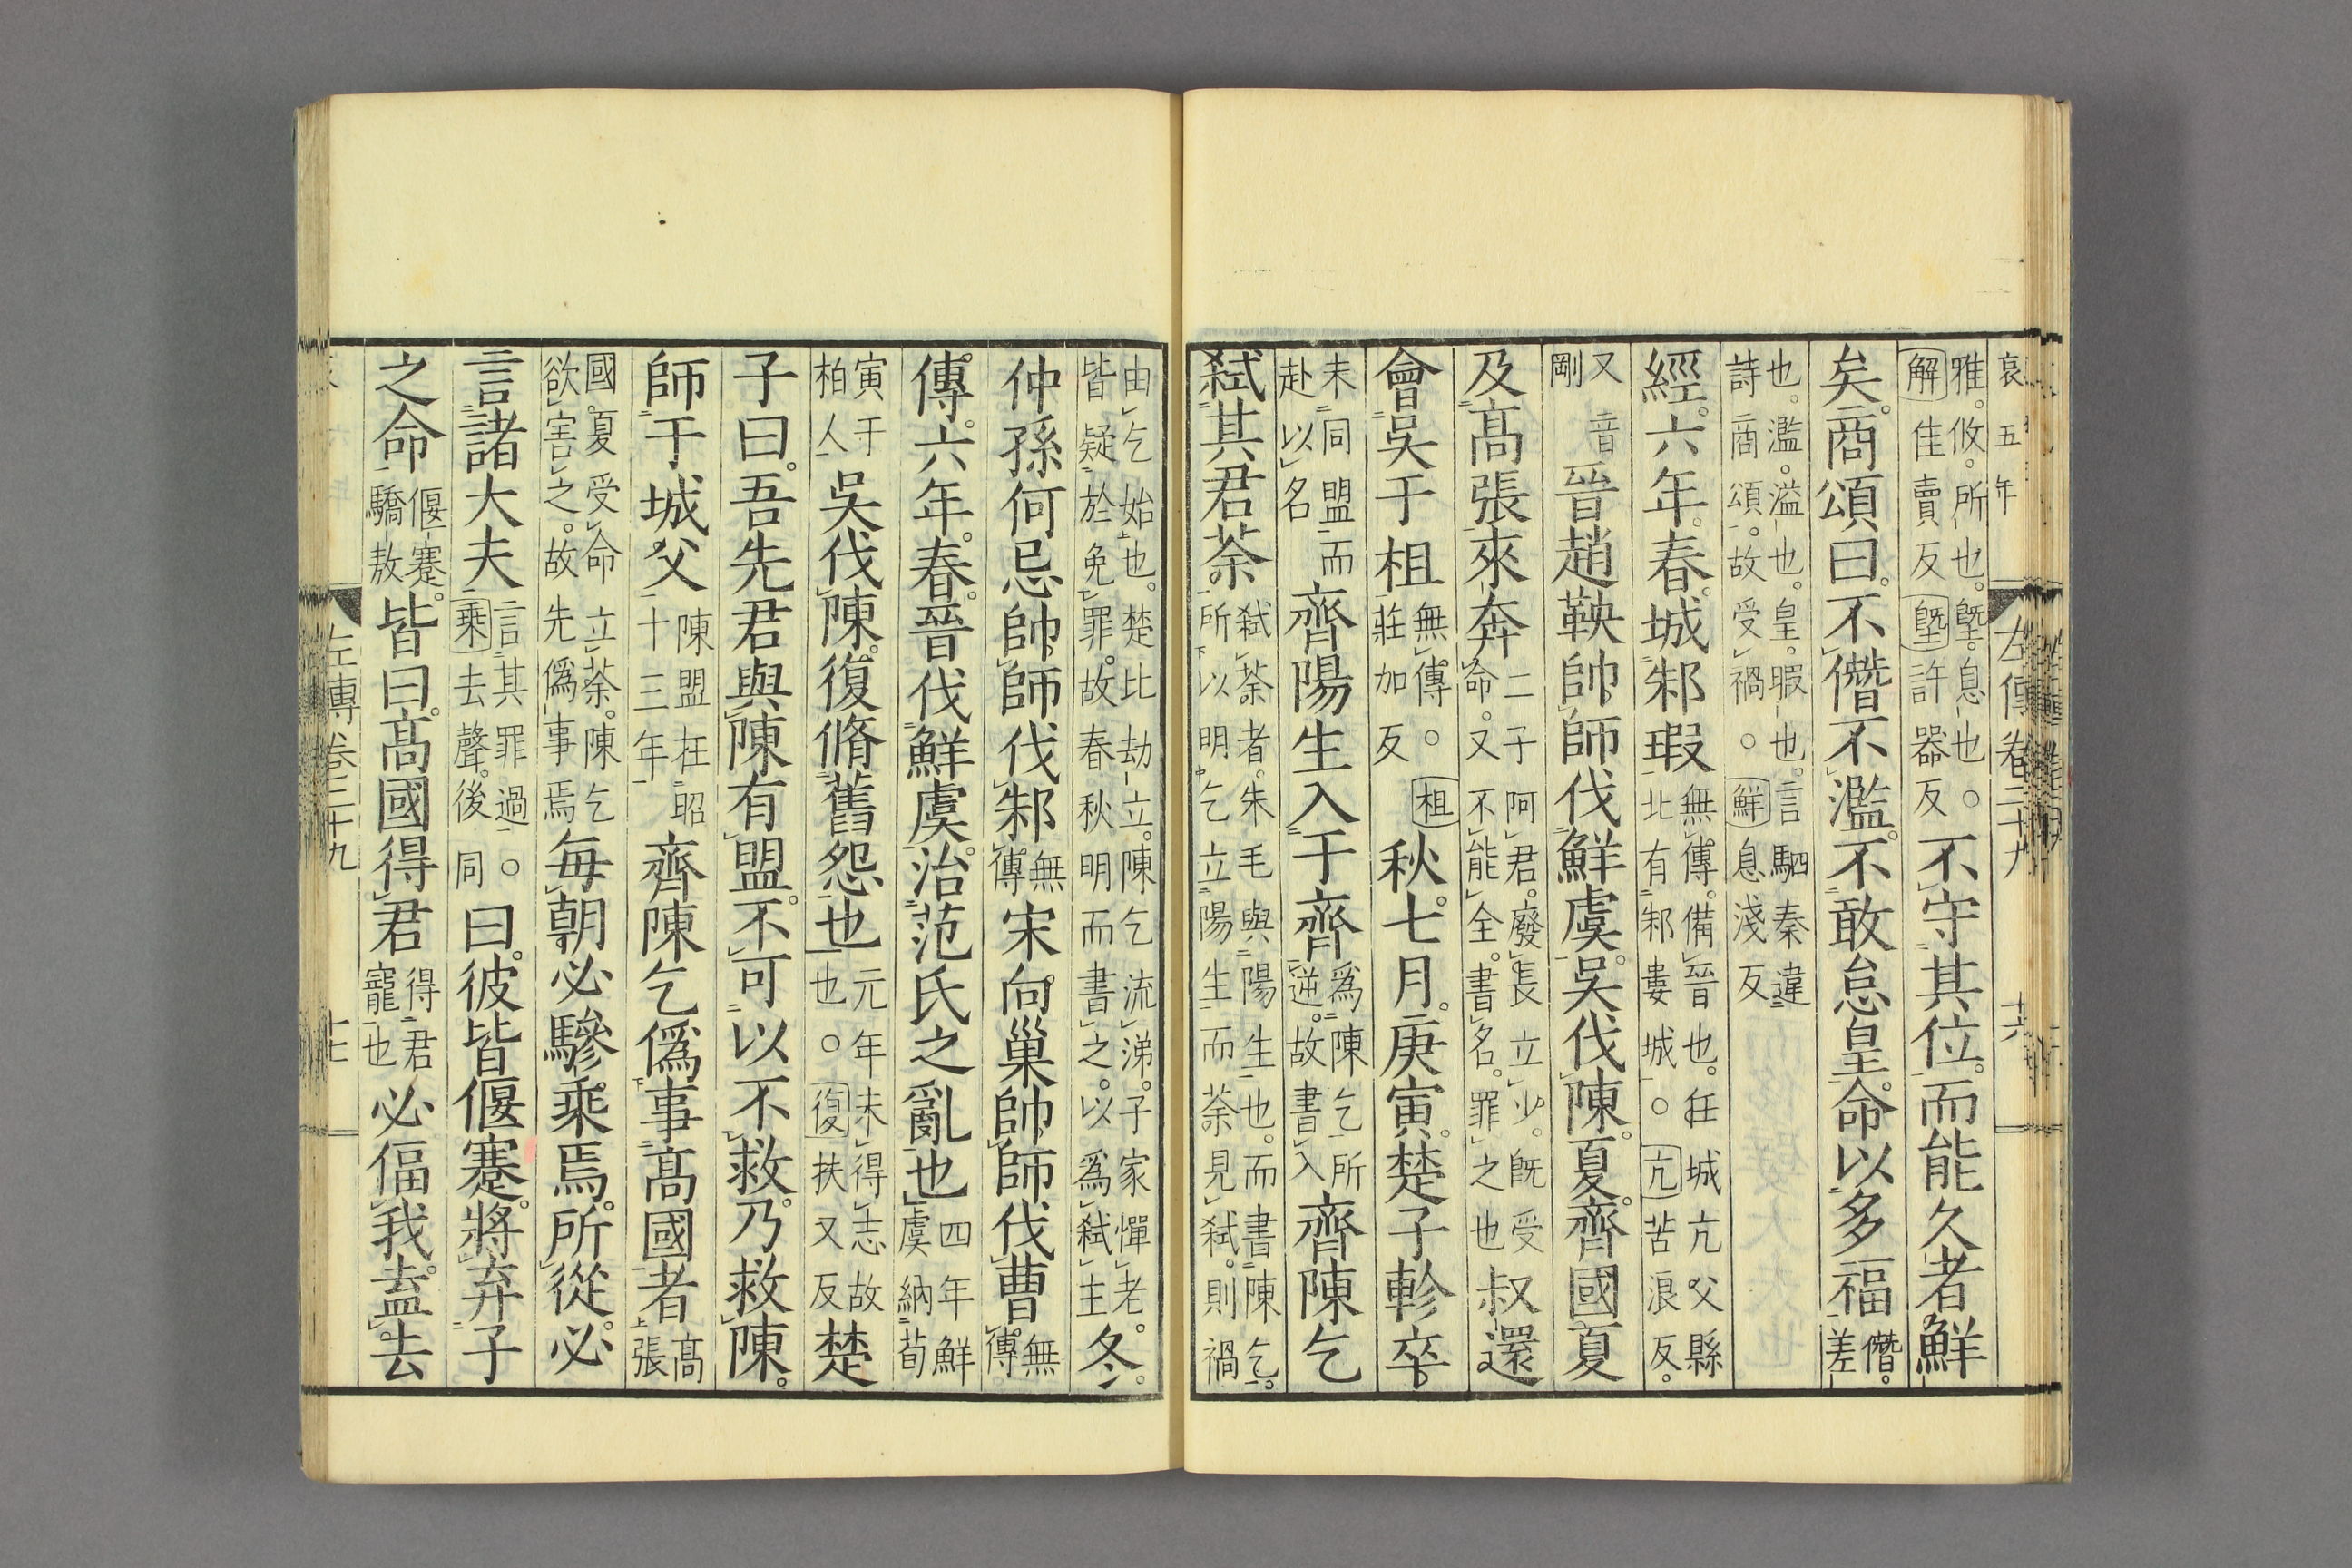 哀五年
左傳卷二十九
十六
雅。攸。所也。塈。息也。○
解佳賣反塈許器反
不守其位。而能久者鮮
矣。商頌曰。不僭不濫。不敢怠皇。命以多福
僭。差
也。濫。溢也。皇。暇也。言駟秦違
詩商頌。故受禍。○鮮息淺反
經。六年。春。城邾瑕
無傳。備晉也。任城亢父縣
北有邾婁城。○亢苦浪反。
又音
剛
晉趙鞅帥師伐鮮虞。吳伐陳。夏。齊國夏
及高張來奔
二子阿君。廢長立少。既受
命。又不能全。書名。罪之也
叔還
會吳于柤
無傳。○柤
莊加反
秋。七月。庚寅。楚子軫卒。
未同盟而
赴以名
齊陽生入于齊
爲陳乞所
逆。故書入
齊陳乞
弑其君荼。
弑荼者。朱毛與陽生也。而書陳乞。
所以明乞立陽生而荼見弑。則禍
由乞始也。楚比劫立。陳乞流涕。子家憚老。
皆疑於免罪。故春秋明而書之。以爲弑主
冬。
仲孫何忌帥師伐邾。
無
傳
宋向巢帥師伐曹。
無
傳。
傳。六年。春。晉伐鮮虞。治范氏之亂也
四年鮮
虞納荀
寅于
柏人
吳伐陳。復脩舊怨也
元年未得志故
也。○復扶又反
楚
子曰。吾先君與陳有盟。不可以不救。乃救陳。
師于城父
陳盟在昭
十三年
齊陳乞僞事高國者
高
張
國夏受命立荼。陳乞
欲害之。故先僞事焉
每朝必驂乘焉。所從。必
言諸大夫
言其罪過。○
乘去聲。後同
曰。彼皆偃蹇。將弃子
之命
偃蹇。
驕敖
皆曰。高國得君
得君
寵也
必偪我。盍去
左傳卷二十九
十七